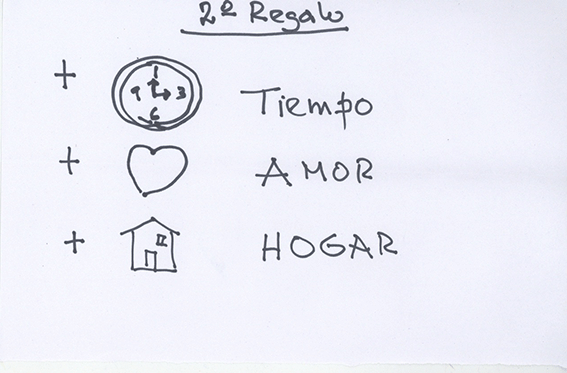 2º Regalo
+ Tiempo
+ AMOR
+ HOGAR